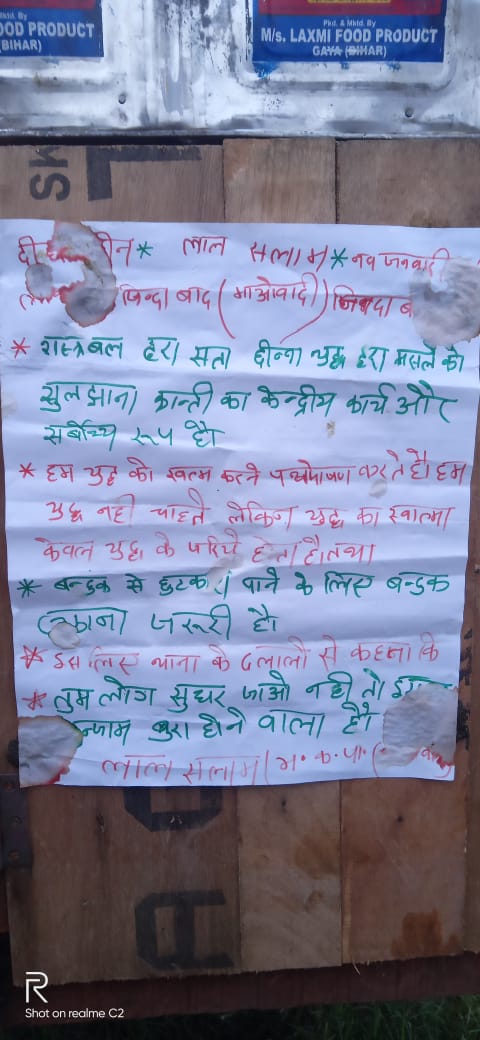 Pkd. & Mktd. By
OOD PRODUCT
M/s. LAXMI FOOD PRODUCT
(BIHAR)
GAYA (BIHAR)
SK
लाल सलाम * नव जनवादी
जिन्दा बाद (माओवादी) जिन्दा ब
* शस्त्रबल द्वारा सता छीनना युद्ध द्वारा मसले को
सुलझाना क्रान्ती का केन्द्रीय कार्य और
सर्बोच्च रूप है।
* हम युद्ध को खत्म करने करते है। हम
युद्ध नही चाहते लेकिन युद्ध का खात्मा
केवल युद्ध के जरिये होता है। तथा
* बन्दुक से छुटकारा पाने के लिए बन्दुक
उठाना जरूरी है।
* इस लिए थाना के दलालो से कहना कि
* तुम लोग सुधर जाओ नही तो
न्जाम बुरा होने वाला है।
लाल सलाम (भ. क. पा. (
R
Shot on realme C2